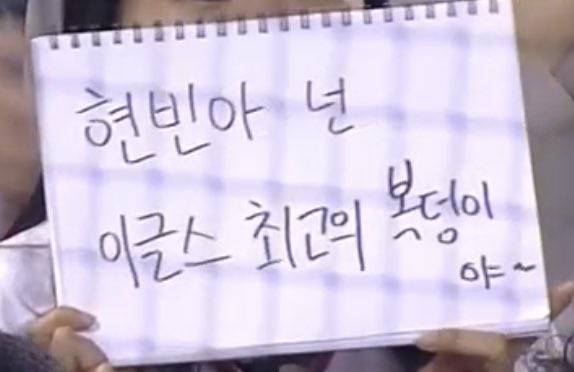 현빈아 넌
이글스 최고의 복덩이
야~